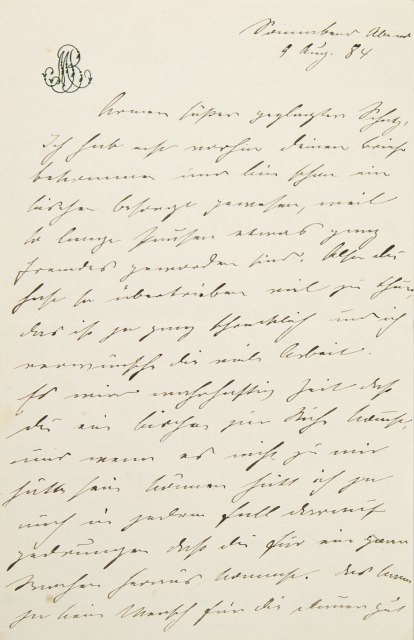 Sonnabend Abend
9 Aug. 84
Armer süßer geplagter Schatz,
Ich hab erst vorhin deinen Brief
bekommen und bin schon ein
bischen besorgt gewesen, weil
so lange Pausen etwas ganz
Fremdes geworden sind. Also du
hast so übertrieben viel zu thun
das ist ja ganz schrecklich und ich
verwünsche die viele Arbeit.
Es wäre wahrhaftig Zeit daß
du ein bischen zur Ruhe kämst,
und wenn es nicht zu mir
hätte sein können hätt ich ja
auch in jedem Fall darauf
gedrungen daß du für ein paar
Wochen heraus kommst. Das kann
ja kein Mensch für die Dauer gut